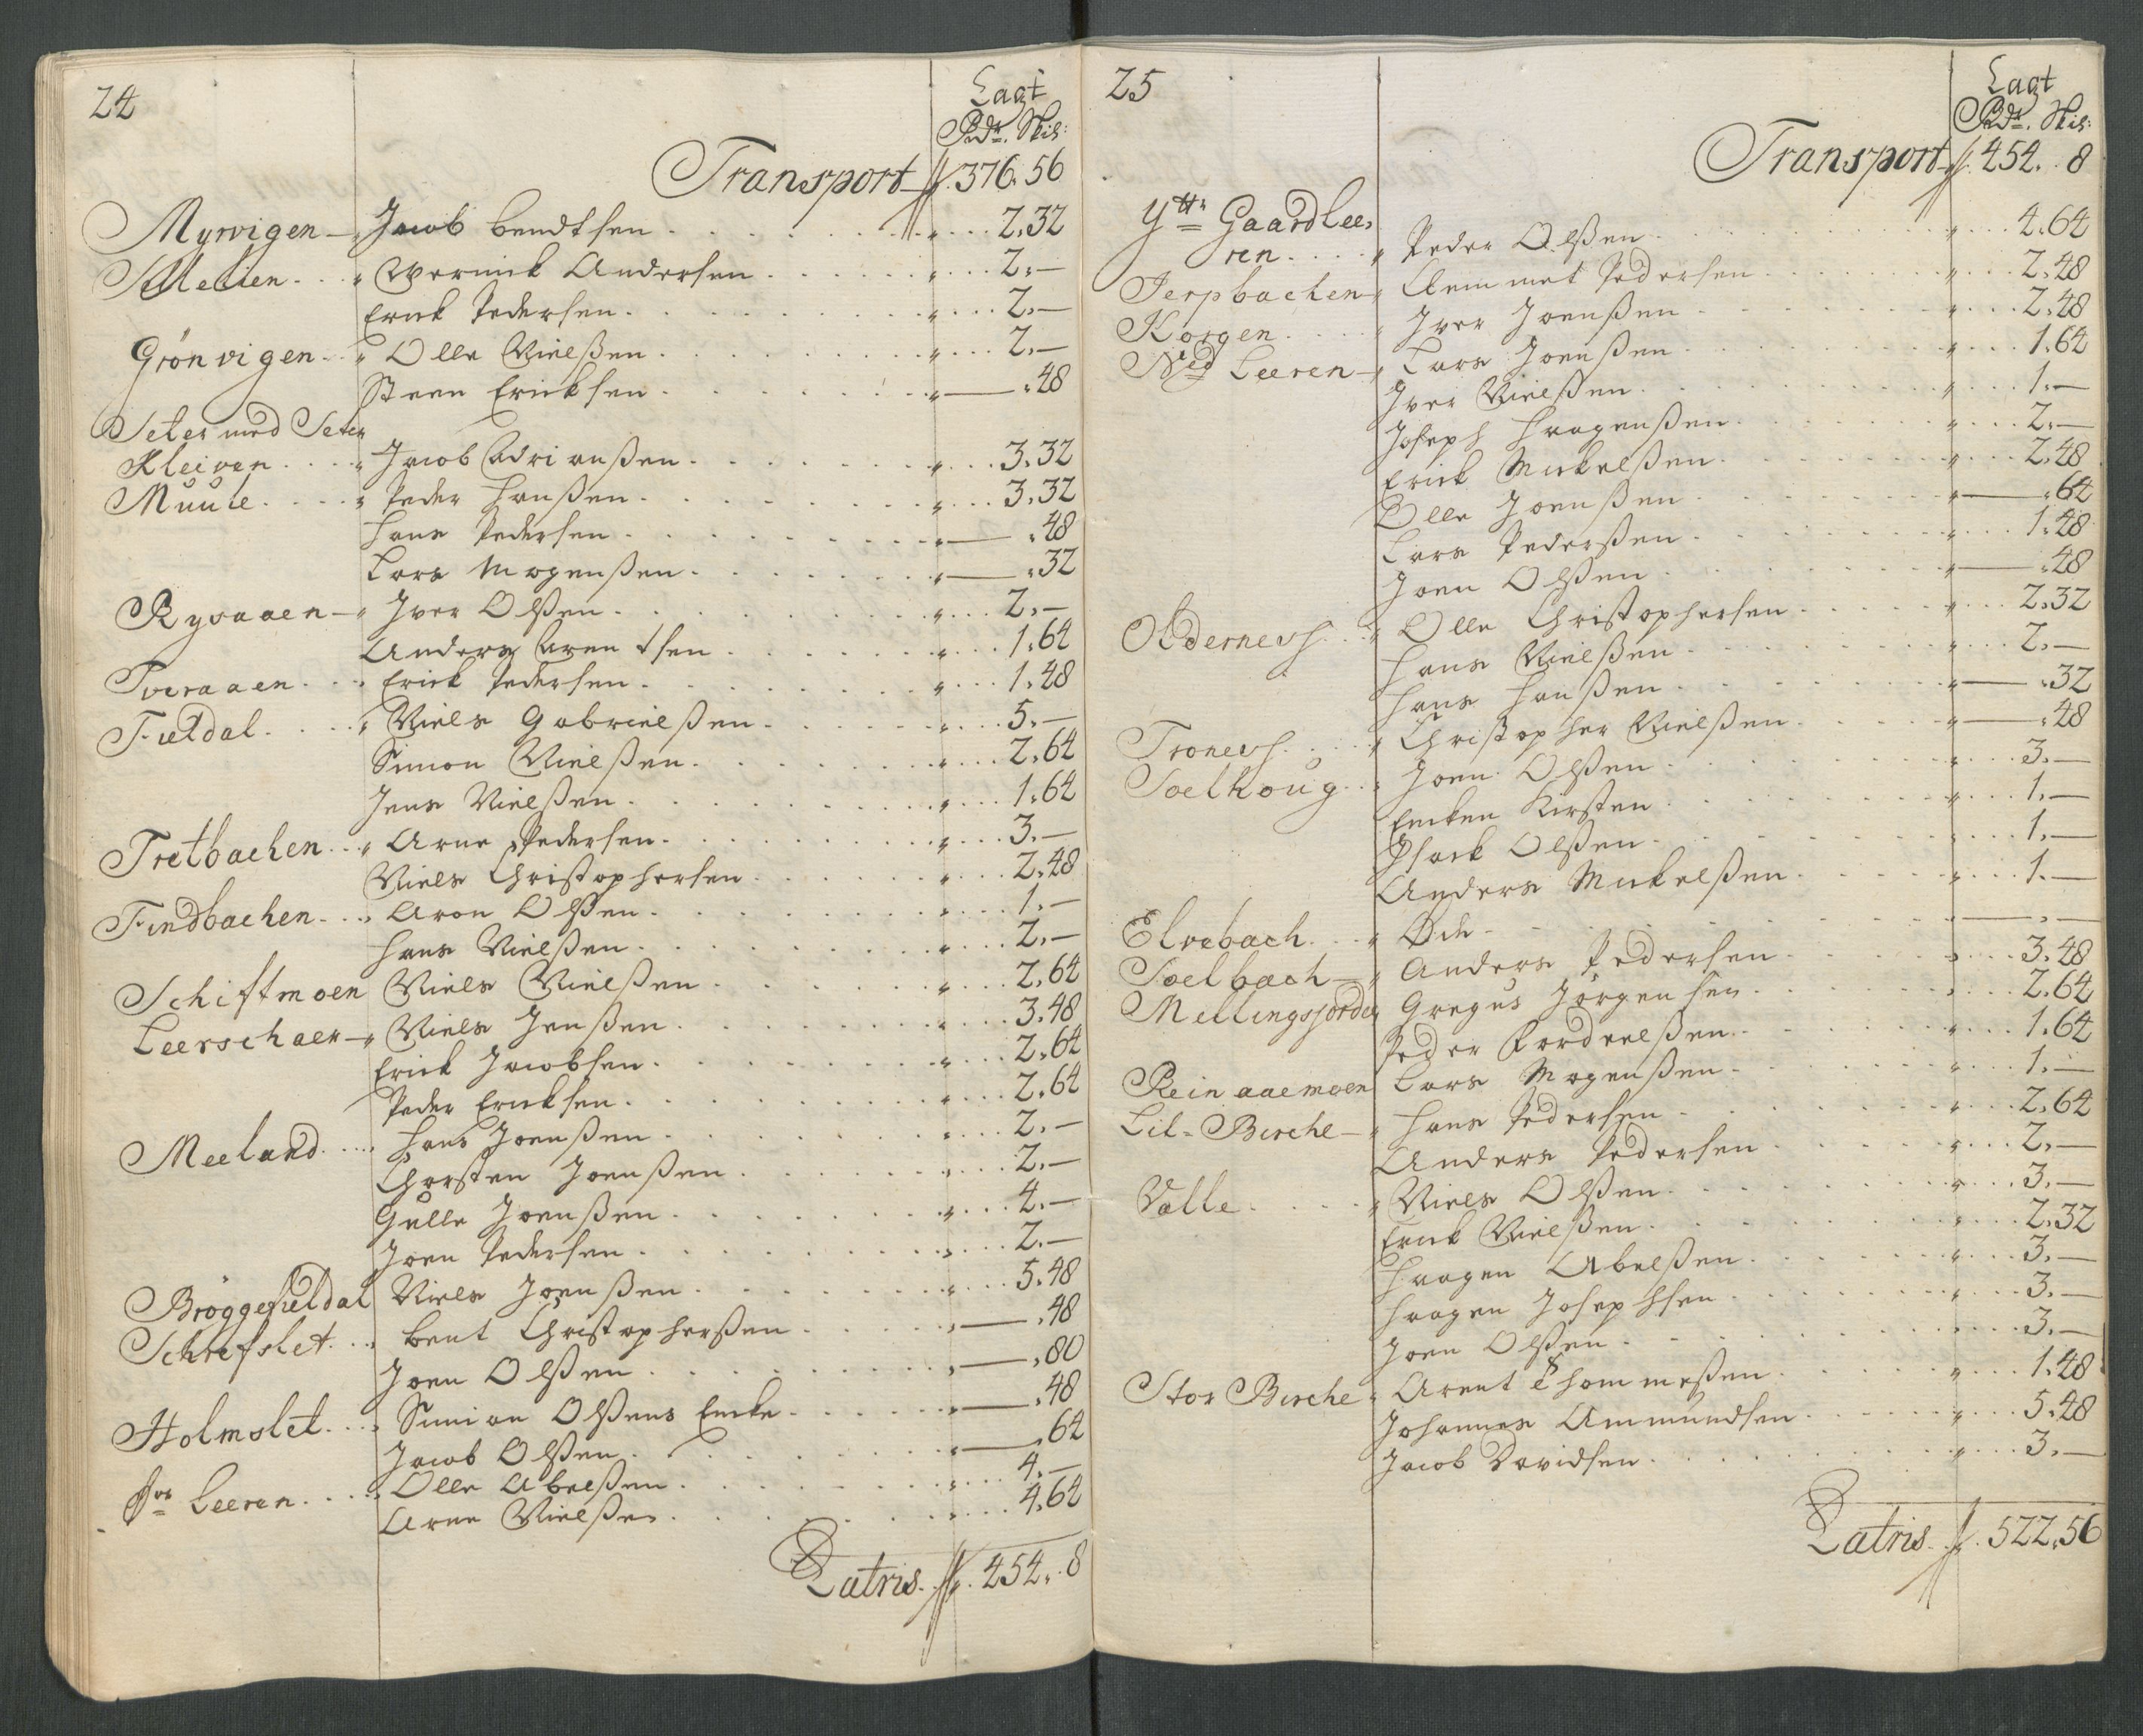 24
Lagt
Rdr. Skil:
Transport 376. 56
Myrvigen Jacob Bendtsen 2. 32
Melien Wernick Andersen 2. —
Erick Pedersen 2. —
Grönvigen Olle Nielßen 2. —
Steen Ericksen 48
Seter med Seter
Kleiven Jacob Adrianßen 3. 32
Muule Peder Hanßen 3. 32
Hans Pedersen 48
Lars Mogenßen 32
Ryvaaen Iver Olßen 2. —
Anders Arentsen 1. 64
Tveraaen Erick Pedersen 1. 48
Fieldal Niels Gabrielßen 5. —
Simon Nielßen 2. 64
Jens Nielßen 1. 64
Tretbachen Arne Pedersen 3. —
Niels Christophersen 2. 48
Findbachen Aron Olßen 1. —
Hans Nielßen 2. —
Schiftmoen Niels Nielßen 2. 64
Leerschaer Niels Jenßen 3. 48
Erick Jacobsen 2. 64
Peder Ericksen 2. 64
Meeland Hans Joenßen 2. —
Chorsten Joenßen 2. —
Gulle Joenßen 4. —
Joen Pedersen 2. —
Bröggefieldal Niels Joenßen 5. 48
Schrefslet Bent Christopherßen 48
Joen Olßen 80
Holmslet Simion Olßens Encke 48
Jacob Olßen 64
Leeren Olle Abelßen 4. —
Arne Nielßen 4. 64
Latris 454. 8
25
Lagt
Rdr. Skil:
Transport 454. 8
Ytr Gaardlee-
ren Peder Olßen 4. 64
Jerpbachen Clemmet Pedersen 2. 48
Korgen Iver Joenßen 2. 48
Ned Leeren Lars Joenßen 1. 64
Iver Nielßen 1. —
Joseph Haagenßen 2. —
Erick Mickelßen 2. 48
Olle Joenßen 64
Lars Pederßen 1. 48
Joen Olßen 48
Oldernesß Olle Christophersen 2. 32
Hans Nielßen 2. —
Hans Hanßen 32
Tronesß Christopher Nielßen 48
Soelhoug Joen Olßen 3. —
Encken Kirsten 1. —
Isack Olßen 1. —
Anders Mickelßen 1. —
Elvebach Øde — —
Soelbach Anders Pedersen 3. 48
Mellingsjorden Gregus Jörgensen 2. 64
Peder Fordeelßen 1. 64
Reinaaemoen Lars Mogenßen 1. —
Lil-Birche Hans Pedersen 2. 64
Anders Pedersen 2. —
Valle Niels Olßen 3. —
Erick Nielßen 2. 32
Haagen Abelßen 3. —
Haagen Josephsen 3. —
Joen Olßen 3. —
Stor Birche Arent Thommeßen 1. 48
Johannes Ammundsen 5. 48
Jacob Davidsen 3. —
Latris 522. 56